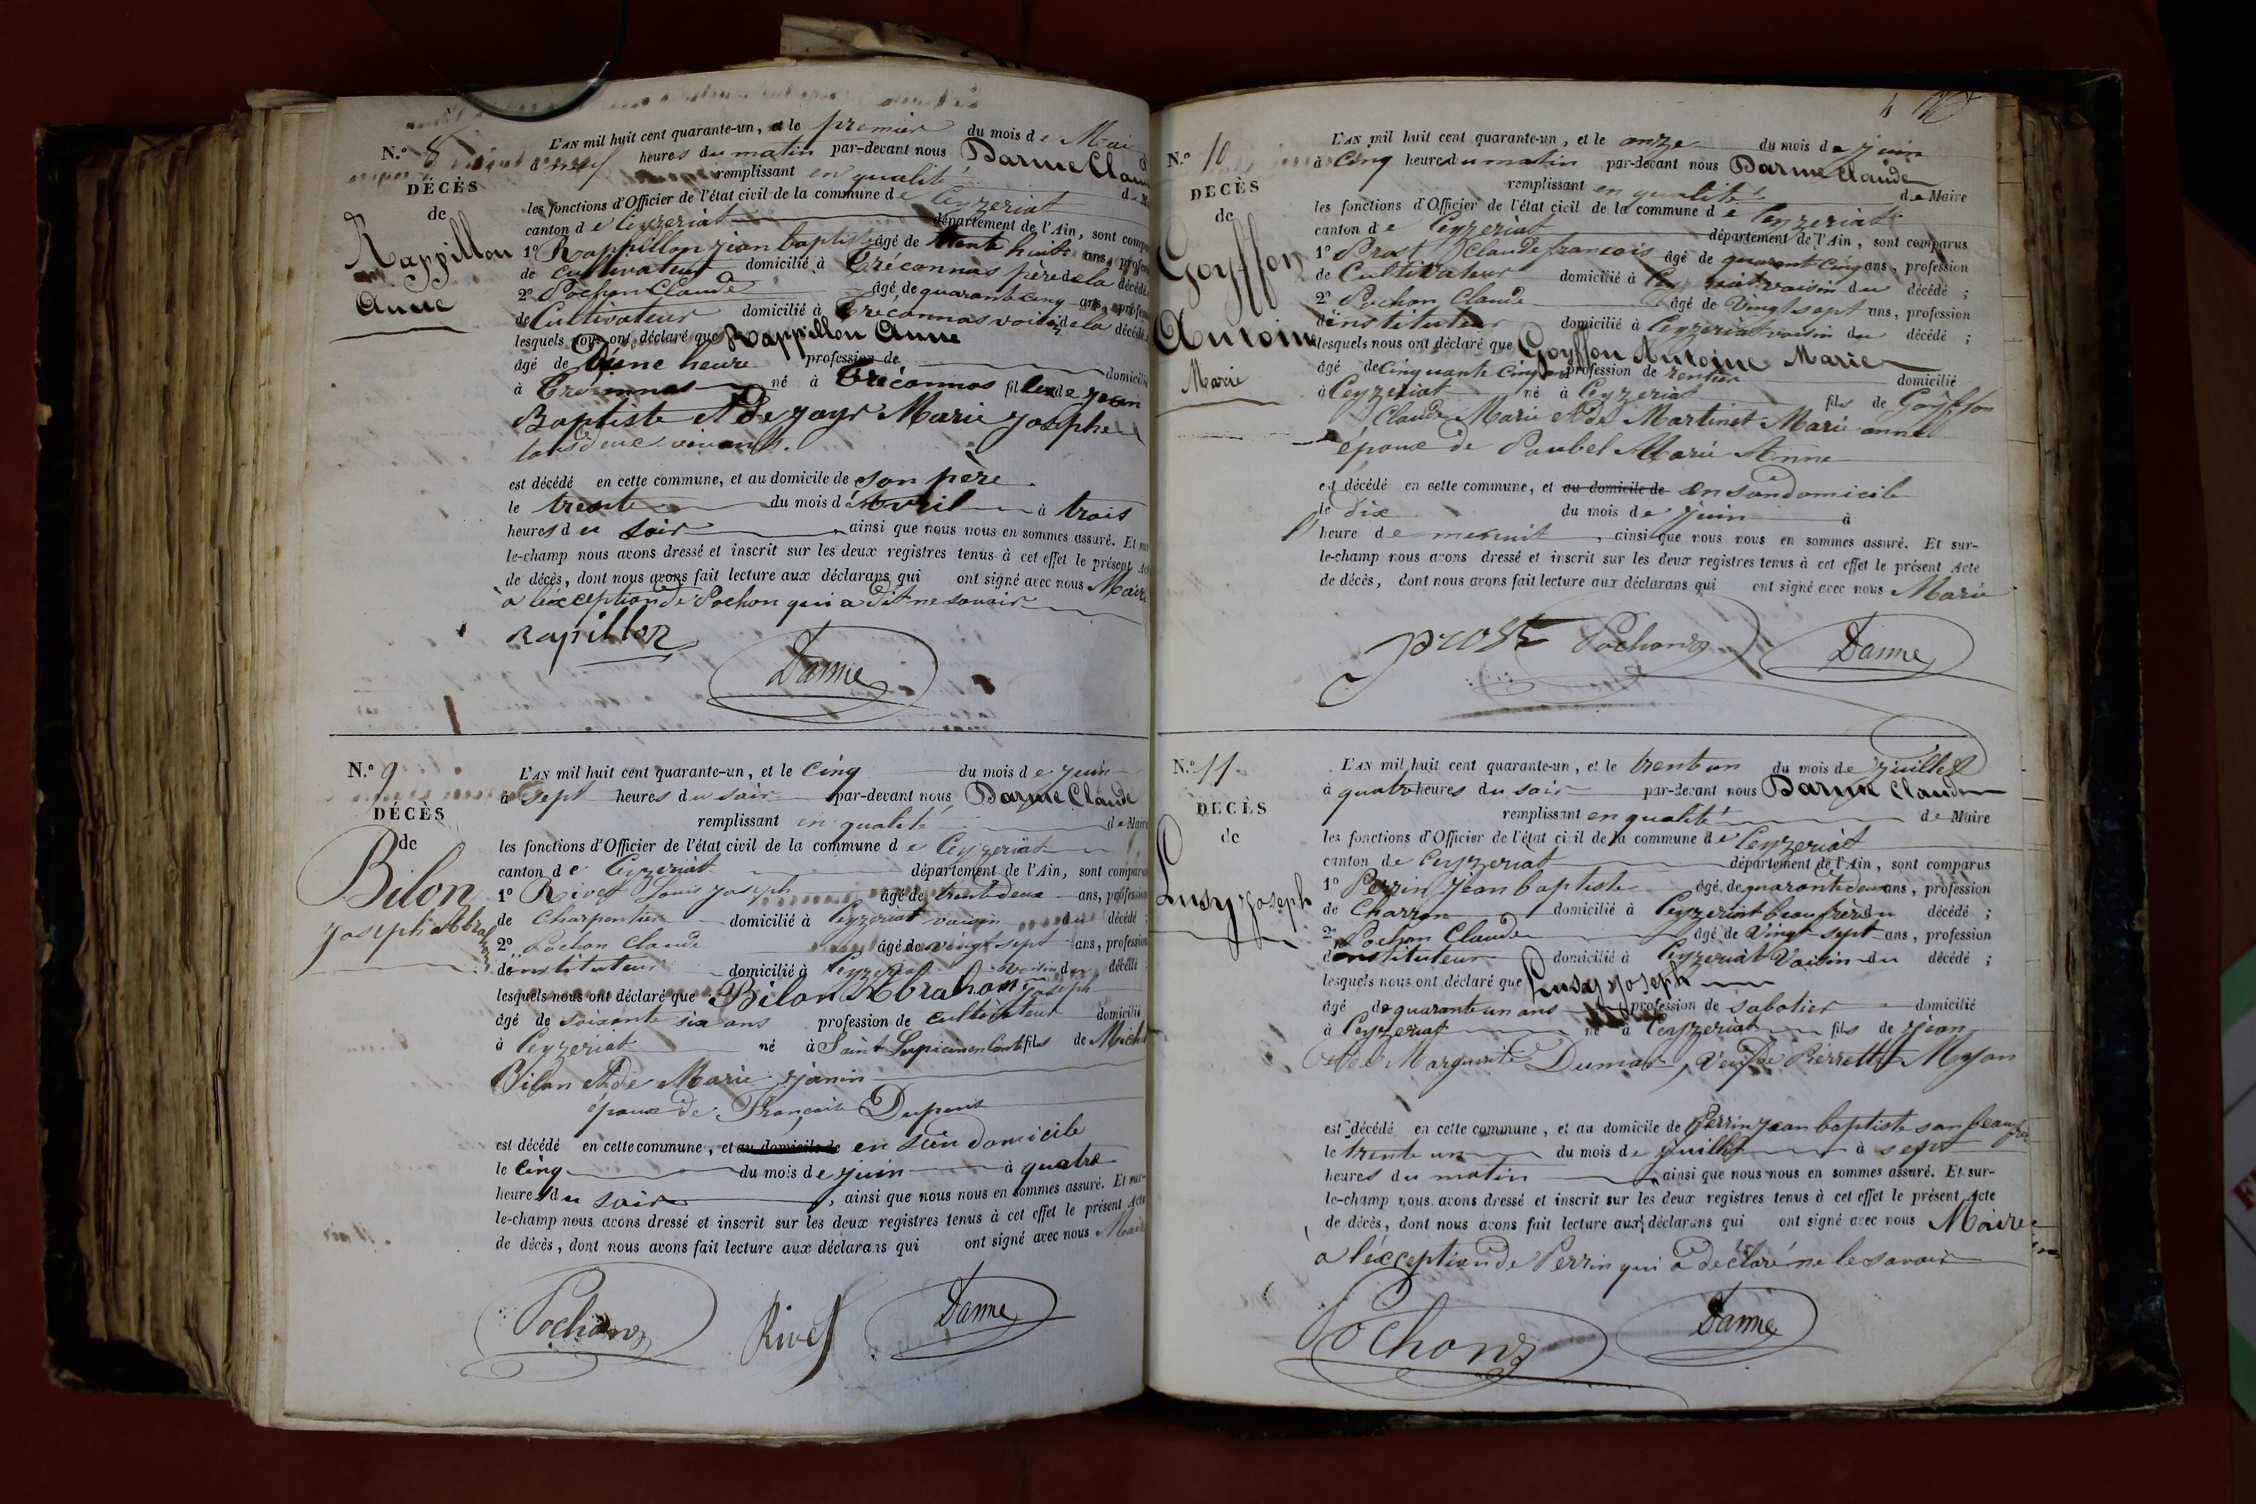 N.º 8
DÉCÈS
de
Rappillon
Anne
L'AN mil huit cent quarante-un, et le premier du mois de Mai
à neuf heures du matin par-devant nous Darme Claude
remplissant en qualité de
les fonctions d'Officier de l'état civil de la commune de Ceyzeriat
canton de Ceyzeriat département de l'Ain, sont
1º Rappillon Jean baptiste âgé de trente huit ans,
de cultivateur domicilié à Tréconnas père de la décédé
2º Pochon Claude âgé de quarante cinq ans,
de Cultivateur domicilié à Tréconnas voisin de la décédé
lesquels nous ont déclaré que Rappillon Anne
âgé de D'une heure profession de domicilié
à Tréconnas né à Tréconnas fille de Jean
Baptiste et de Jayr Marie Josephe
tous deux vivants.
est décédé en cette commune, et au domicile de son père
le trente du mois d'Avril à trois
heures du soir, ainsi que nous nous en sommes assuré. Et sur-
le-champ nous avons dressé et inscrit sur les deux registres tenus à cet effet le présent Acte
de décès, dont nous avons fait lecture aux déclarans qui ont signé avec nous Maire
à l'exception de Pochon qui a dit ne savoir
Rapillon
Darme
N.º 9
DÉCÈS
de
Bilon
Joseph abbraham
L'AN mil huit cent quarante-un, et le cinq du mois de juin
à sept heures du soir par-devant nous Darme Claude
remplissant en qualité de Maire
les fonctions d'Officier de l'état civil de la commune de Ceyzeriat
canton de Ceyzeriat département de l'Ain, sont comparus
1º Rivet Louis Joseph âgé de trente deux ans, profession
de Charpentier domicilié à Ceyzeriat voisin du décédé ;
2º Pochon Claude âgé de vingt sept ans, profession
d'instituteur domicilié à Ceyzeriat voisin du décédé
lesquels nous ont déclaré que Bilon Abraham Joseph
âgé de soixante six ans profession de cultivateur domicilié
à Ceyzeriat né à Saint Lupicin fils de Michel
Bilon et de Marie Janin
époux de Françoise Dupuis
est décédé en cette commune, et au domicile de en son domicile
le cinq du mois de juin à quatre
heures du soir, ainsi que nous nous en sommes assuré. Et sur-
le-champ nous avons dressé et inscrit sur les deux registres tenus à cet effet le présent Acte
de décès, dont nous avons fait lecture aux déclarans qui ont signé avec nous Maire
Pochon
Rivet
Darme
N.º 10
DÉCÈS
de
Goyffon
Antoine
Marie
L'AN mil huit cent quarante-un, et le onze du mois de juin
à Cinq heures du matin par-devant nous Darme Claude
remplissant en qualité de Maire
les fonctions d'Officier de l'état civil de la commune de Ceyzeriat
canton de Ceyzeriat département de l'Ain, sont comparus
1º Prost Claude francois âgé de quarante Cinq ans, profession
de Cultivateur domicilié à Ceyzeriat voisin du décédé ;
2º Pochon Claude âgé de Vingt sept ans, profession
d'instituteur domicilié à Ceyzeriat voisin du décédé ;
lesquels nous ont déclaré que Goyffon Antoine Marie
âgé de Cinquante Cinq ans profession de rentier domicilié
à Ceyzeriat né à Ceyzeriat fils de Goyffon
Claude Marie et de Martinet Marie anne
époux de Paubel Marie Anne
est décédé en cette commune, et au domicile de en son domicile
le dix du mois de juin à
heure de menuit, ainsi que nous nous en sommes assuré. Et sur-
le-champ nous avons dressé et inscrit sur les deux registres tenus à cet effet le présent Acte
de décès, dont nous avons fait lecture aux déclarans qui ont signé avec nous Maire
prost
Pochon
Darme
N.º 11
DÉCÈS
de
Lusy Joseph
L'AN mil huit cent quarante-un, et le trent un du mois de juillet
à quatre heures du soir par-devant nous Darme Claude
remplissant en qualité de Maire
les fonctions d'Officier de l'état civil de la commune de Ceyzeriat
canton de Ceyzeriat département de l'Ain, sont comparus
1º Perrin Jean baptiste âgé de quarante deux ans, profession
de Charron domicilié à Ceyzeriat beaufrère du décédé ;
2º Pochon Claude âgé de Vingt sept ans, profession
d'instituteur domicilié à Ceyzeriat Voisin du décédé ;
lesquels nous ont déclaré que Lusy Joseph
âgé de quarante un ans profession de sabotier domicilié
à Ceyzeriat né à Ceyzeriat fils de Jean
et de Marguerite Dumas, Veuf de Pierrette Moyon
est décédé en cette commune, et au domicile de Perrin Jean baptiste son beaufrère
le trente un du mois de juillet à sept
heures du matin, ainsi que nous nous en sommes assuré. Et sur-
le-champ nous avons dressé et inscrit sur les deux registres tenus à cet effet le présent Acte
de décès, dont nous avons fait lecture aux déclarans qui ont signé avec nous Maire
à l'exception de Perrin qui a déclaré ne le savoir
Pochon
Darme